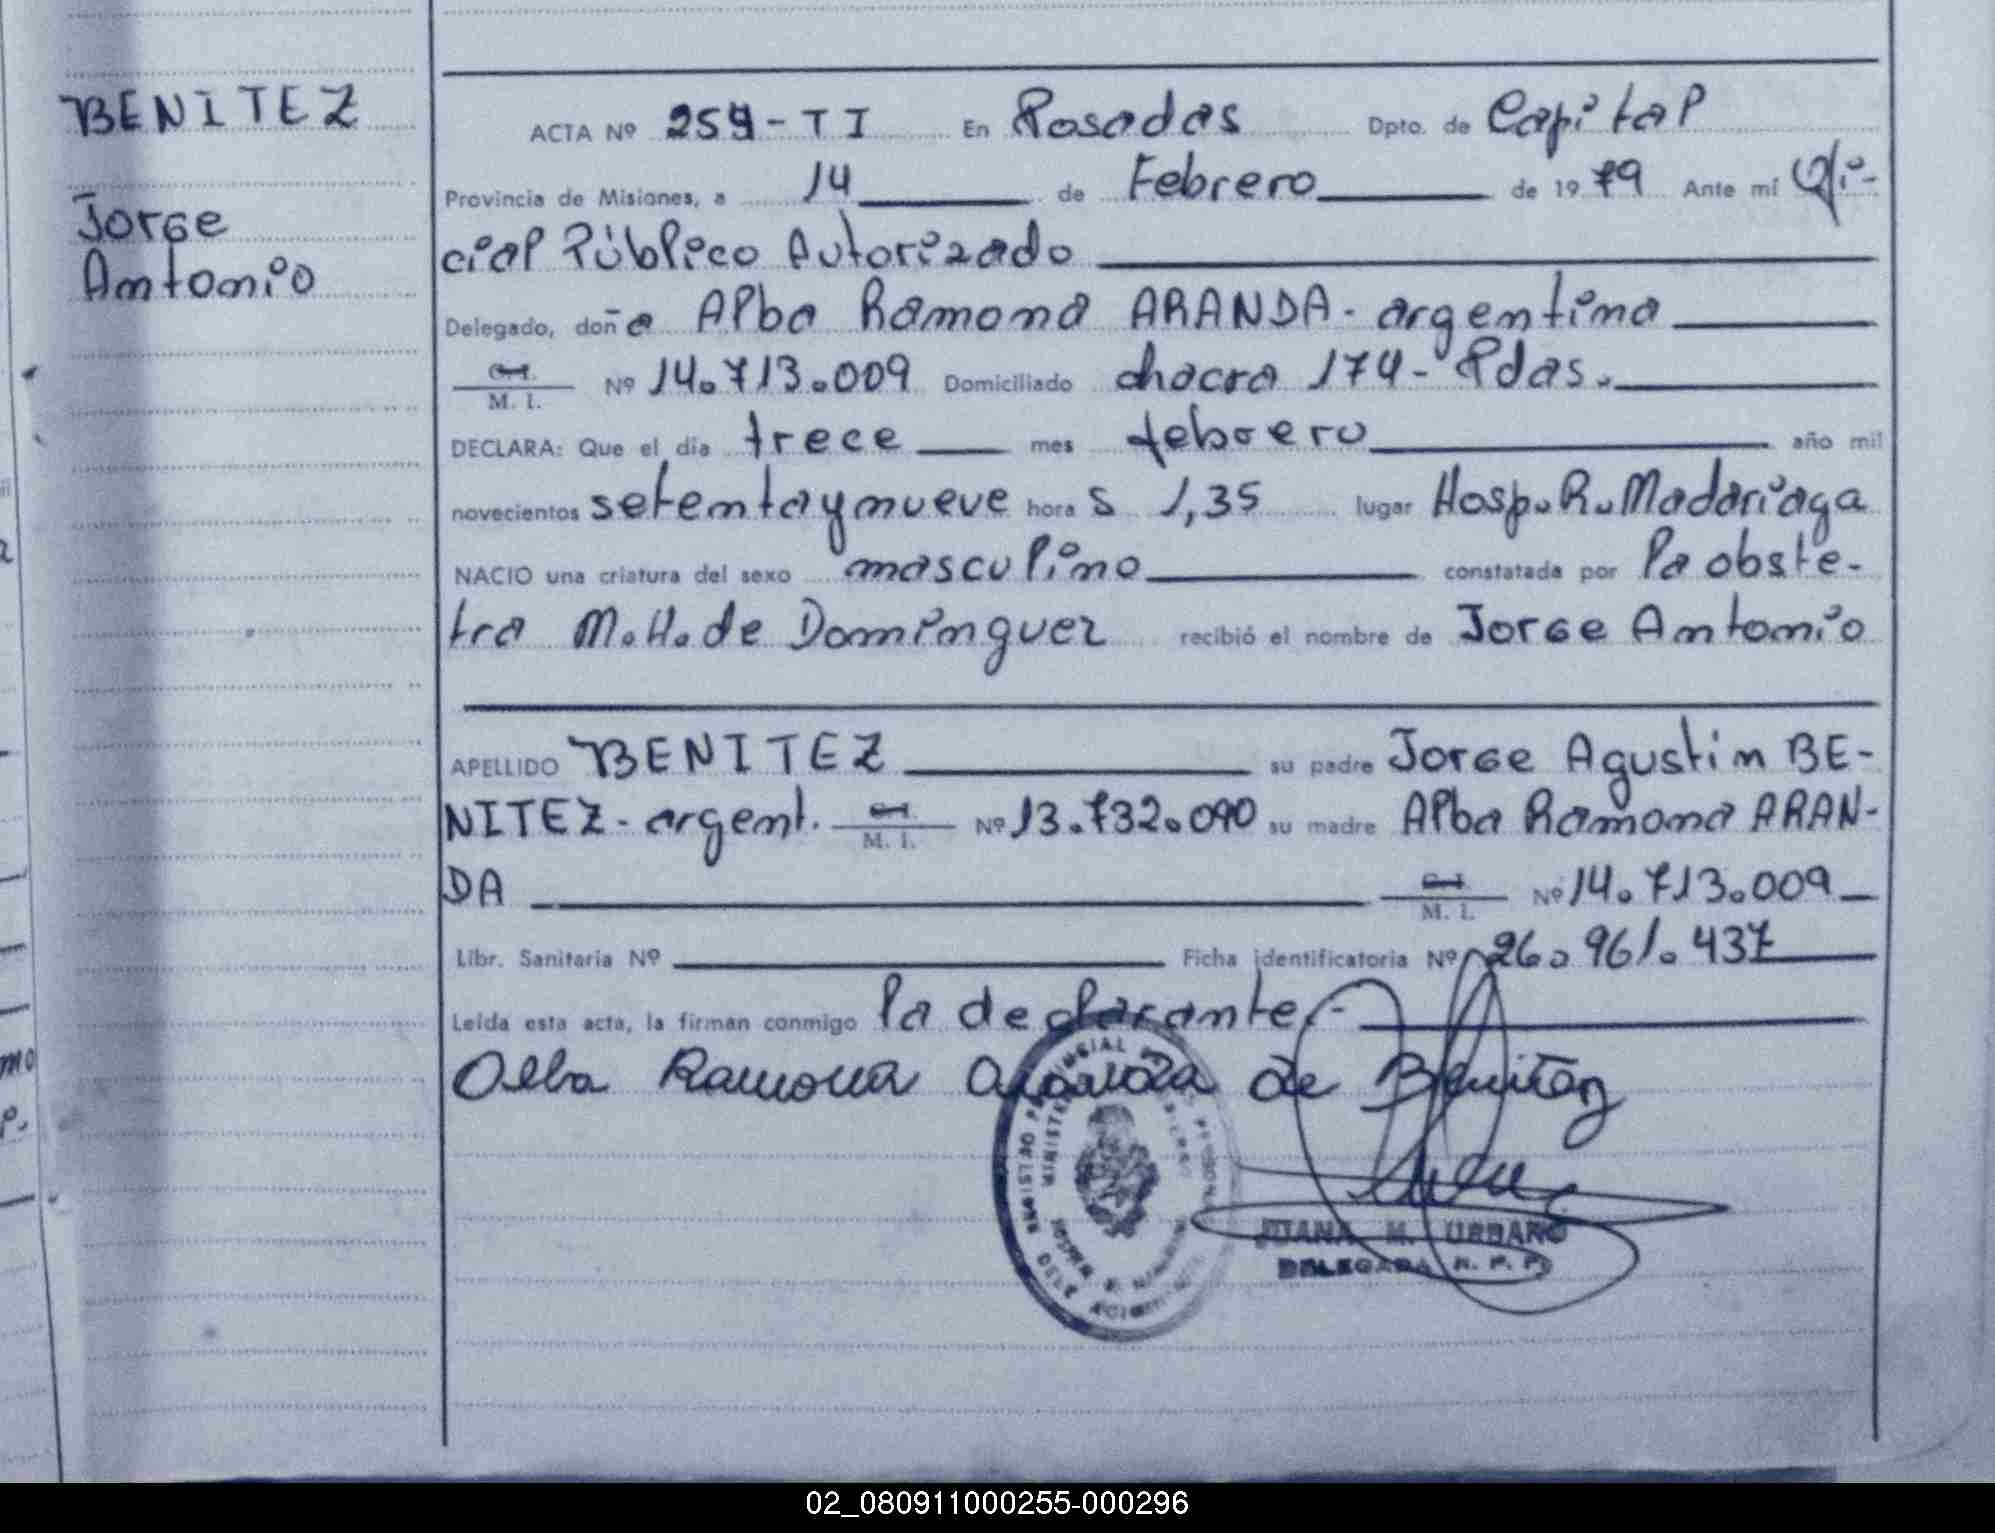 BENITEZ
Jorge
Antonio
ACTA Nº 259-TI En Posadas Dpto. de Capital
Provincia de Misiones, a 14 de Febrero de 1979 Ante mí Ofi-
cial Público Autorizado
Delegado, doña Alba Ramona ARANDA - argentina
C.I. M. I. Nº 14.713.009 Domiciliado chacra 174 - Pdas.
DECLARA: Que el día trece mes febrero año mil
novecientos setenta y nueve horas 1,35 lugar Hosp. R. Madariaga
NACIO una criatura del sexo masculino constatada por la obste-
tra M.H. de Dominguez recibió el nombre de Jorge Antonio
APELLIDO BENITEZ su padre Jorge Agustin BE-
NITEZ - argent. C.I. M. I. Nº 13.732.090 su madre Alba Ramona ARAN-
DA C.I. M. I. Nº 14.713.009
Libr. Sanitaria Nº Ficha identificatoria Nº 26.961.437
Leída esta acta, la firman conmigo la declarante.-
Alba Ramona Aranda de Benitez
JUANA M. URBANO
DELEGADA R. P. P.
02_080911000255-000296